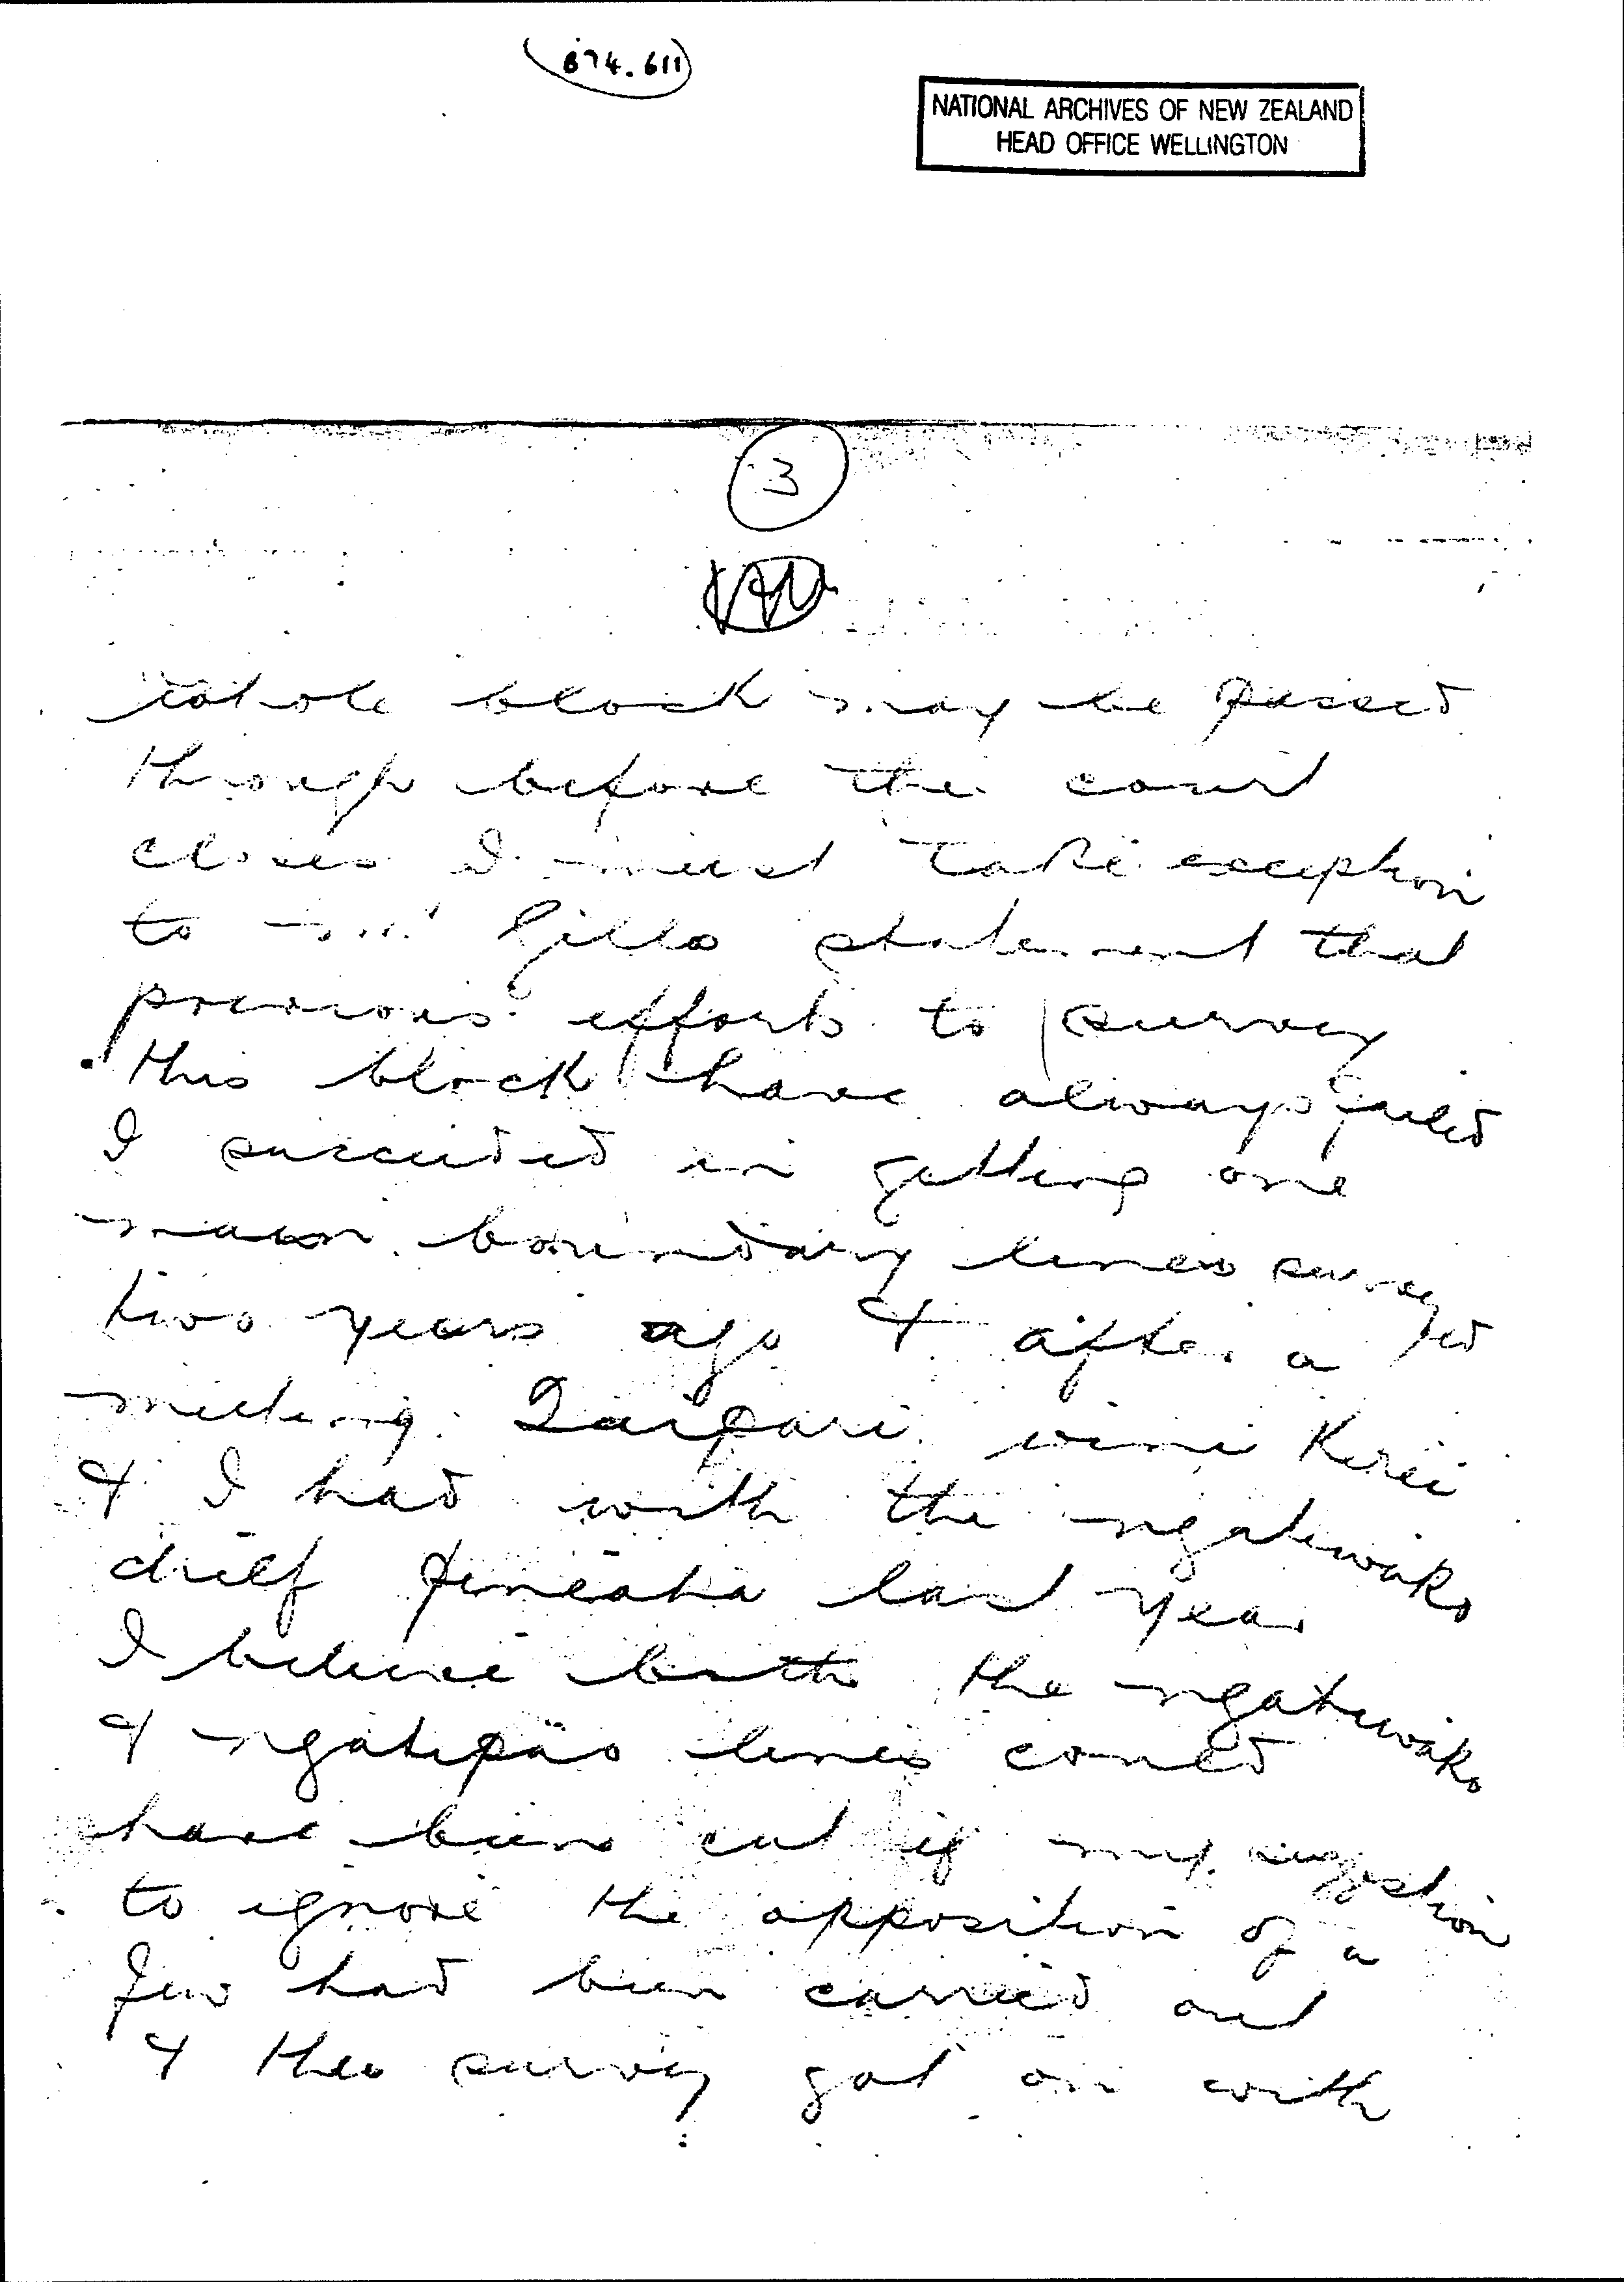 874.611
NATIONAL ARCHIVES OF NEW ZEALAND
HEAD OFFICE WELLINGTON
3
whole block may be passed
through before the court
closes I must take exception
to Mr Gills statement that
previous efforts to survey
this block have always failed
I succeeded in getting one
main boundary lines surveyed
two years ago & after a
meeting Taipari wini Kerei
& I had with the ngatiwako
chief last year
I believe both the ngatiwako
& ngatipaos lines could
have been cut if my sugestion
to ignore the opposition of a
few had been carried out
& the survey got on with